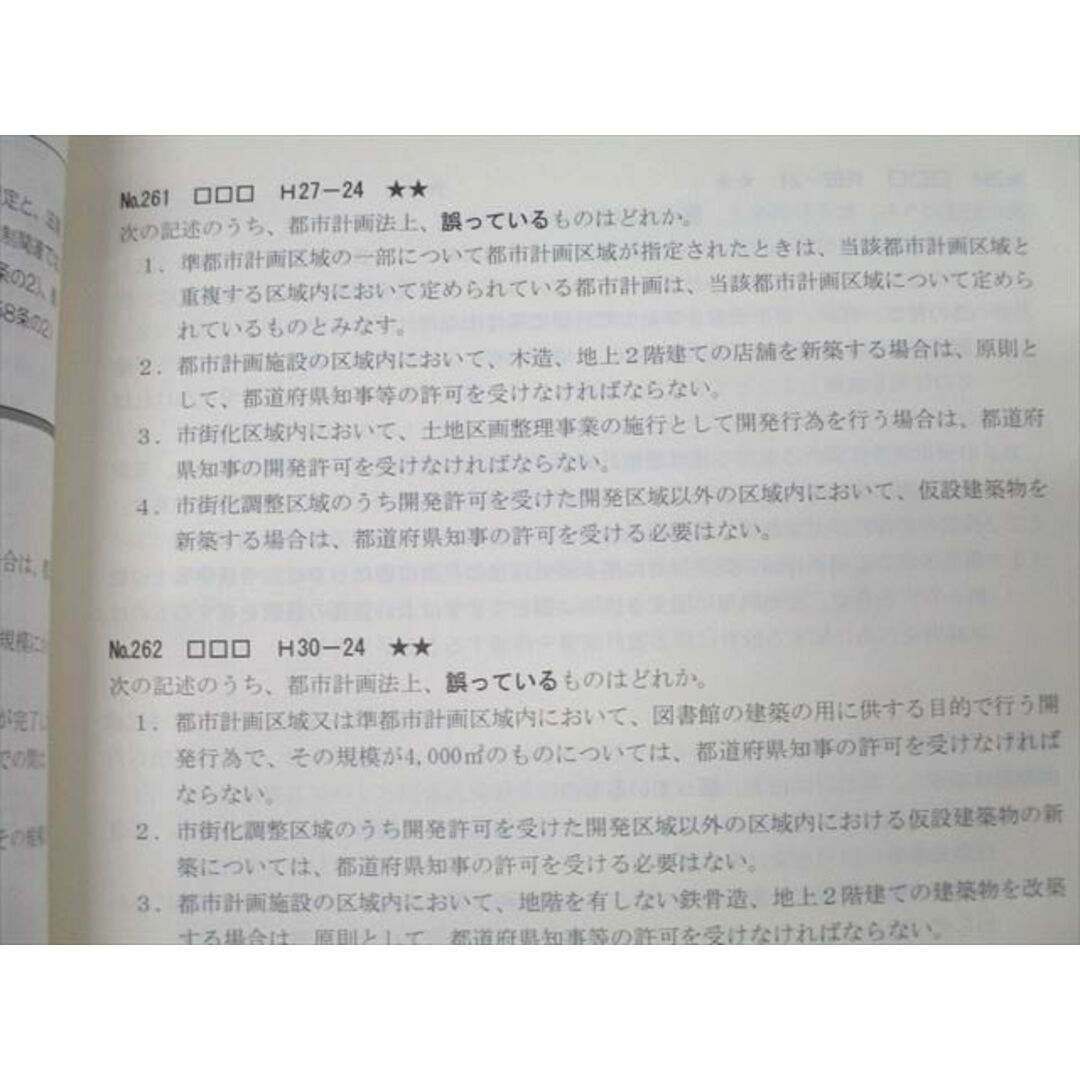 No.261 □□□ H27－24 ★★
次の記述のうち、都市計画法上、誤っているものはどれか。
1．準都市計画区域の一部について都市計画区域が指定されたときは、当該都市計画区域と
重複する区域内において定められている都市計画は、当該都市計画区域について定めら
れているものとみなす。
2．都市計画施設の区域内において、木造、地上2階建ての店舗を新築する場合は、原則と
して、都道府県知事等の許可を受けなければならない。
3．市街化区域内において、土地区画整理事業の施行として開発行為を行う場合は、都道府
県知事の開発許可を受けなければならない。
4．市街化調整区域のうち開発許可を受けた開発区域以外の区域内において、仮設建築物を
新築する場合は、都道府県知事の許可を受ける必要はない。
No.262 □□□ H30－24 ★★
次の記述のうち、都市計画法上、誤っているものはどれか。
1．都市計画区域又は準都市計画区域内において、図書館の建築の用に供する目的で行う開
発行為で、その規模が4,000㎡のものについては、都道府県知事の許可を受けなければ
ならない。
2．市街化調整区域のうち開発許可を受けた開発区域以外の区域内における仮設建築物の新
築については、都道府県知事の許可を受ける必要はない。
3．都市計画施設の区域内において、地階を有しない鉄骨造、地上2階建ての建築物を改築
する場合は、原則として、都道府県知事等の許可を受けなければならない。